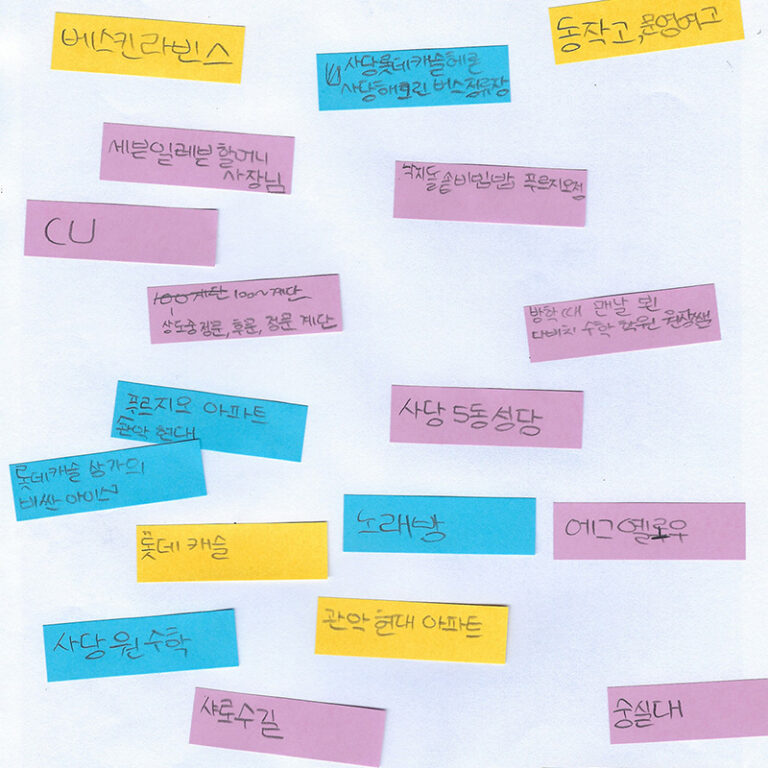 베스킨라빈스
동작고, 문영여고
사당롯데캐슬헤론
사당해그린 버스정류장
세븐일레븐 할머니
사장님
낙지돌솥비빔밥 푸르지오점
CU
100계단 100~계단
상도중정문, 후문, 정문 계단
방학 때 맨날 본
다비치 수학 학원 원장쌤
푸르지오 아파트
관악 현대
사당 5동성당
롯데캐슬 상가의
비싼 아이스
노래방
에그옐로우
롯데 캐슬
관악 현대 아파트
사당 원 수학
샤로수길
숭실대